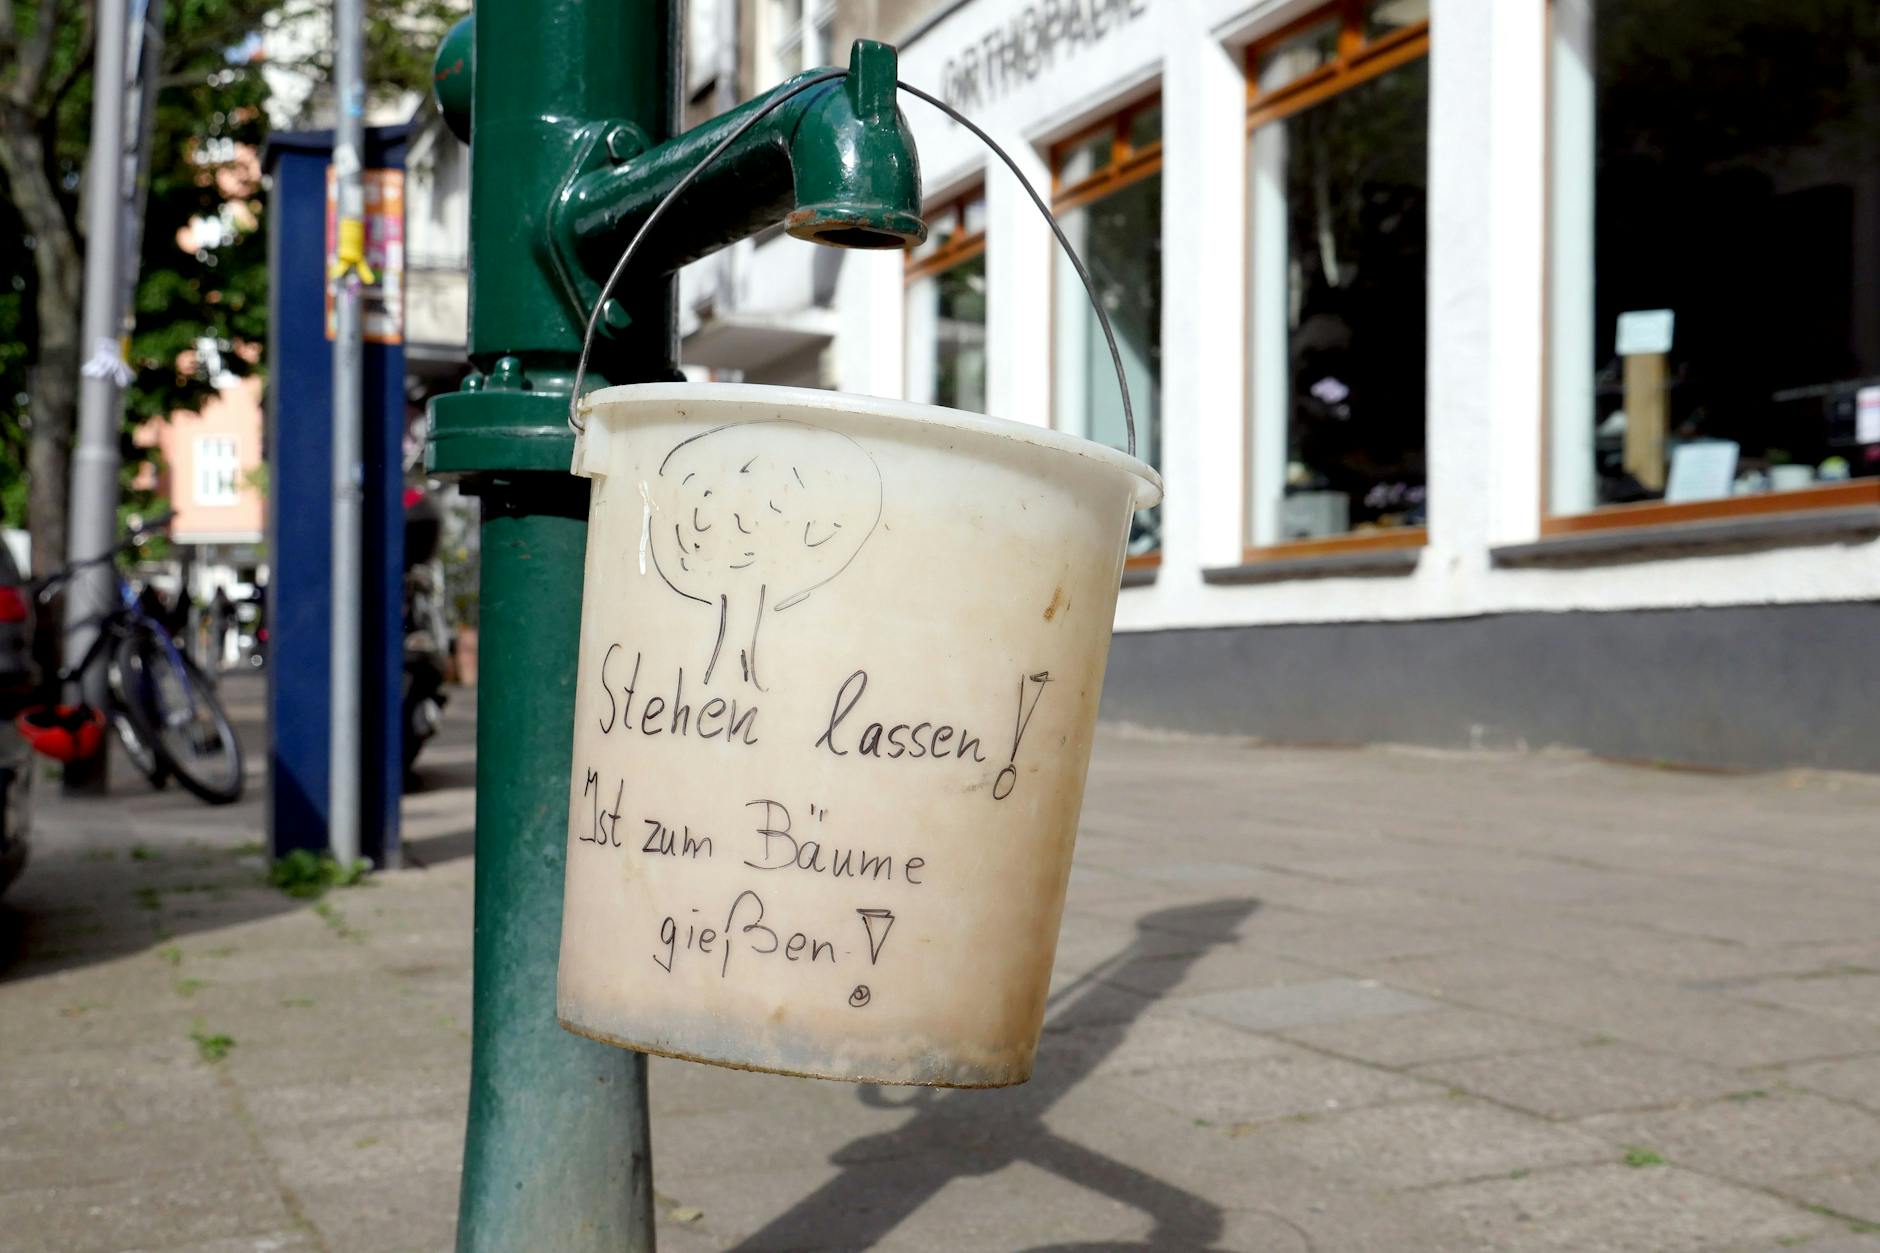 ORTHOPÄDIE
Stehen lassen!
Ist zum Bäume
gießen!